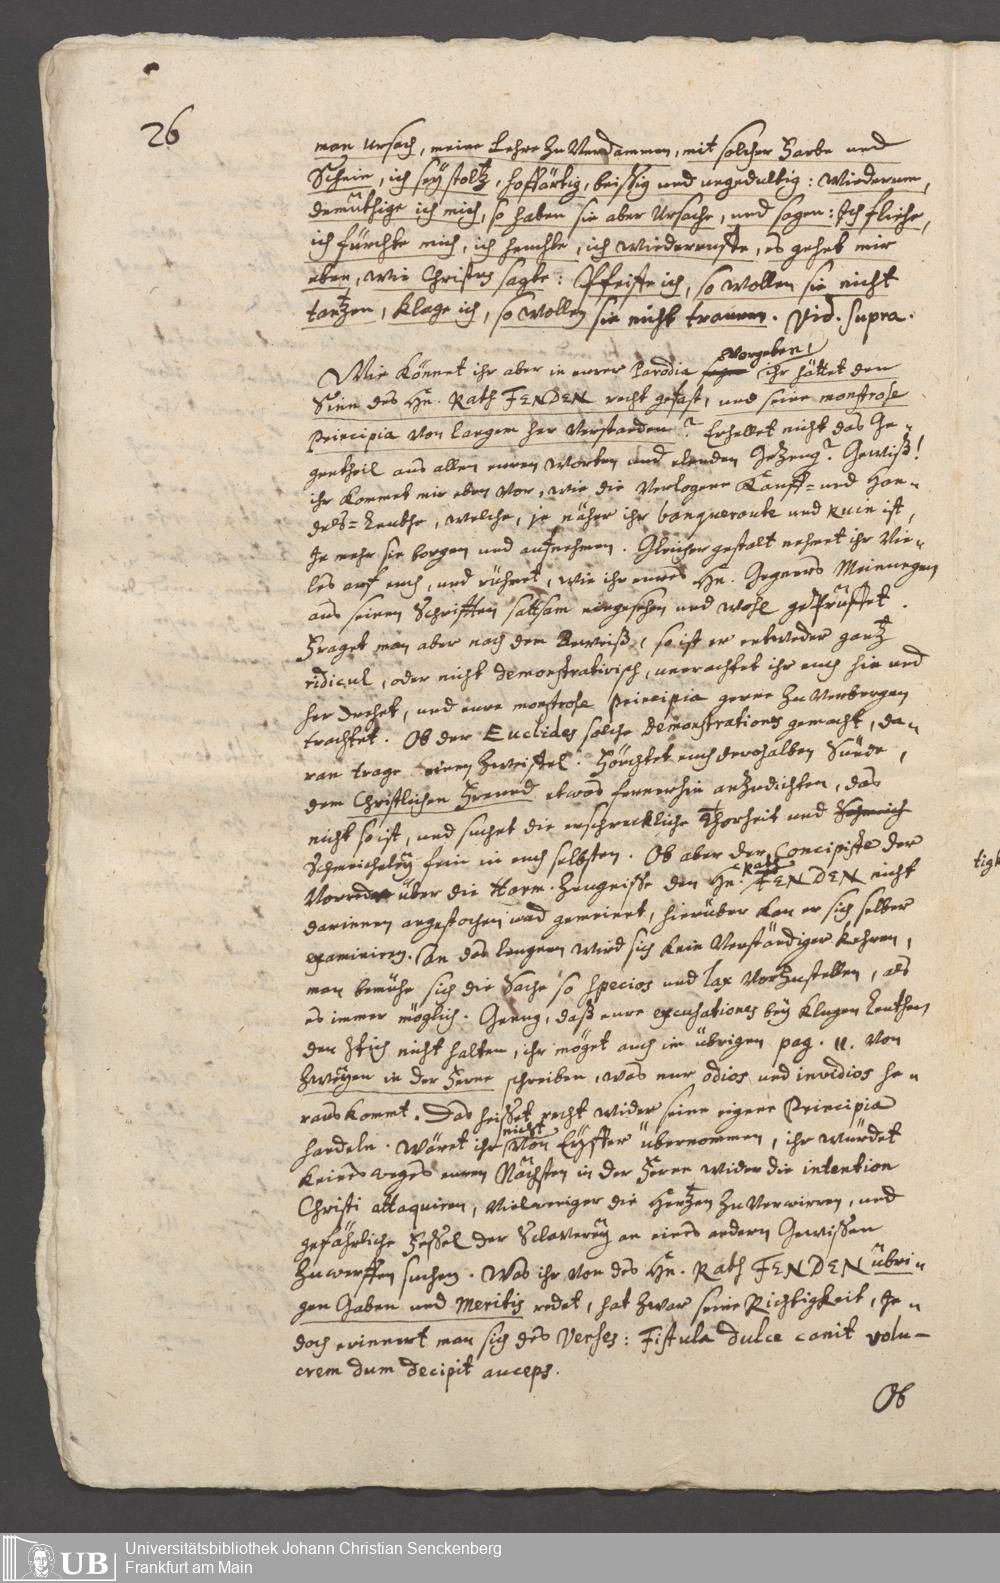 26
man Ursach, meine Lehre zu Verdammen, mit solcher Farbe und
Schein, ich seÿ stoltz, hoffärtig, beissig und ungedultig: Wiederum,
demüthige ich mich, so haben sie aber Ursache, und sagen: Ich fliehe,
ich fürchte mich, ich heuchle, ich wiederruffe, es gehet mir
eben, wie Christus sagte: Pfeiffe ich, so wollen sie nicht
tantzen, klage ich, so wollen sie nicht trauren. Vid. supra.
Wie könnet ihr aber in eurer Parodia vorgeben, ihr hättet den
Sinn des Hn. Rath FENDEN recht gefast, und seine monstrose
Principia von langem her verstanden? Erhellet nicht das Ge-
gentheil aus allen euren Worten und elenden Gezeug? Gewiß!
ihr kommet mir eben vor, wie die verlogene Kauff- und Han-
dels-Leuthe, welche, je näher ihr banqueroute und Ruin ist,
Je mehr sie borgen und aufnehmen. Gleicher gestalt nehmet ihr Vie-
les auf euch, und rühmet, wie ihr eures Hn. Gegners Meinungen
aus seinen Schrifften sattsam eingesehen und wohl geprüffet.
Fraget man aber nach dem Beweiß, so ist er entweder gantz
ridicul, oder nicht demonstrativisch, unerachtet ihr euch hin und
her drehet, und eure monstrose Principia gerne zu verbergen
trachtet. Ob der Euclides solche Demonstrationes gemacht, da-
ran trage einen Zweiffel. Förchtet euch derohalben Sünde,
dem Christlichen Freund etwas fernerhin anzudichten, das
nicht so ist, und suchet die erschreckliche Thorheit und Schmeich
Schmeicheleÿ fein in euch selbsten. Ob aber der Concipiste der
Vorrede über die Harm. Zeugnisse den Hn. Rath FENDEN nicht
darinnen angestochen und gemeinet, hierüber kan er sich selber
examiniren. An das leugnen wird sich kein Verständiger kehren,
man bemühe sich die Sache so specios und lax vorzustellen, als
es immer möglich. Genug, daß eure excusationes beÿ klugen Leuthen
den Stich nicht halten, ihr möget auch im übrigen pag. 11. von
Zweÿen in der Ferne schreiben, was nur odios und invidios he-
rauskommt. Das heisset recht wider seine eigene Principia
handeln. Wäret ihr nicht von Eÿffer übernommen, ihr würdet
keines weges euren Nächsten in der Ferne wider die intention
Christi attaquiren, vielweniger die Hertzen zu verwirren, und
gefährliche Fessel der Sclavereÿ an eines andern Gewissen
zu werffen suchen. Was ihr von des Hn. Rath FENDEN übri-
gen Gaben und Meritis redet, hat zwar seine Richtigkeit, Je-
doch erinnert man sich des Verses: Fistula dulce canit volu-
crem dum decipit auceps.
Ob
tigk
UB
Universitätsbibliothek Johann Christian Senckenberg
Frankfurt am Main